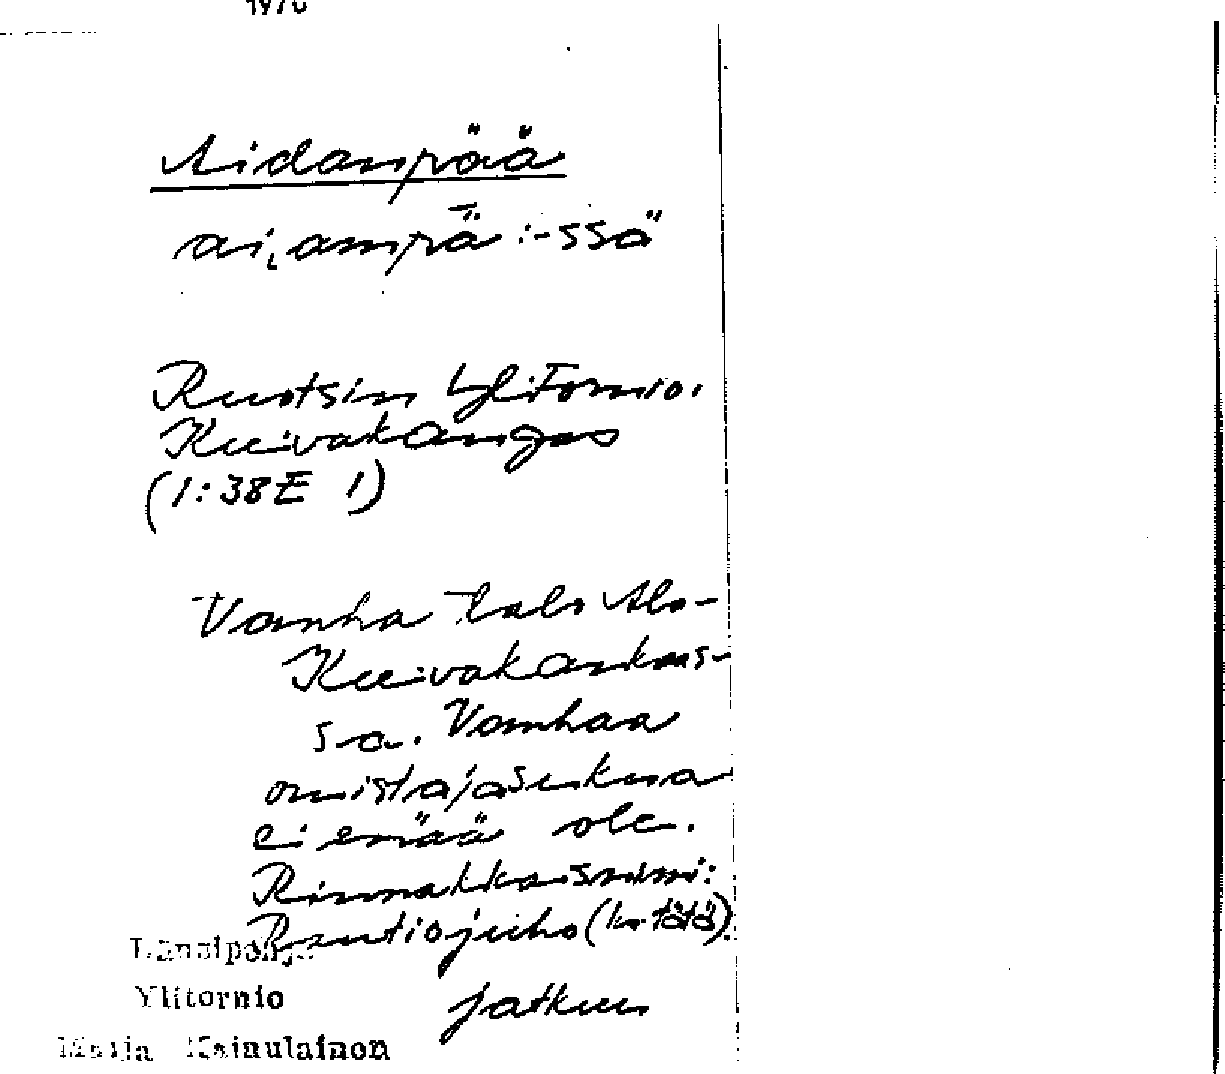 1970
Aidanpää
ai̯ampǟ :-ssä
Ruotsin Ylitornio.
Kuivakangas
(1:38E 1)
Vanha talo Ala-
Kuivakankas-
sa. Vanhaa
omistajasukua
ei enää ole.
Rinnakkaisnimi:
Rautiojuho (ks. tätä).
Länsipohja
Ylitornio
jatkuu
Maija Kainulainen